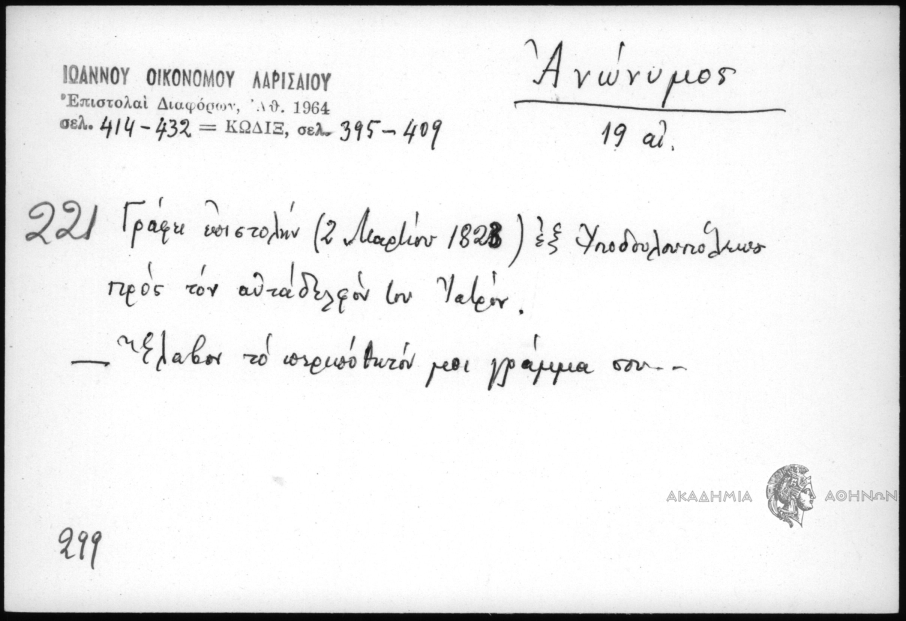 ΙΩΑΝΝΟΥ ΟΙΚΟΝΟΜΟΥ ΛΑΡΙΣΑΙΟΥ
Ἐπιστολαὶ Διαφόρων, Ἀθ. 1964
σελ. 414-432 = ΚΩΔΙΞ, σελ. 395-409
Ἀνώνυμος
19 αἰ.
221 Γράφει ἐπιστολήν (2 Μαρτίου 1823) ἐξ
πρός τόν αὐτάδελφόν του Ἰατρόν.
— Ἔλαβον τό περιπόθητόν μοι γράμμα σου...
299
ΑΚΑΔΗΜΙΑ ΑΘΗΝΩΝ